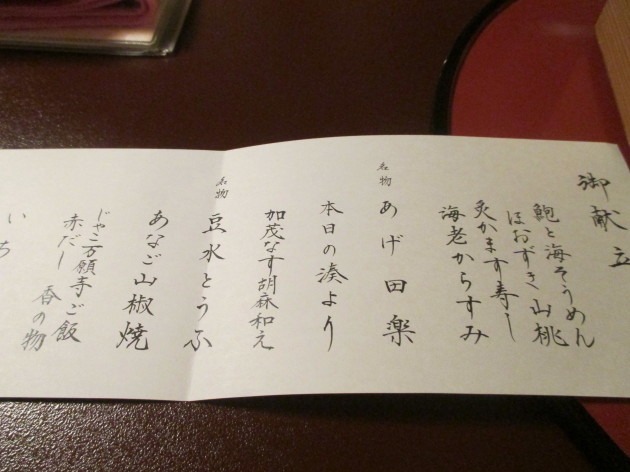 御献立
鮑と海そうめん
ほおずき 山桃
炙かます寿し
海老からすみ
名物 あげ田楽
本日の湊より
加茂なす胡麻和え
名物 豆水とうふ
あなご山椒焼
じゃこ万願寺ご飯
赤だし 香の物
いち